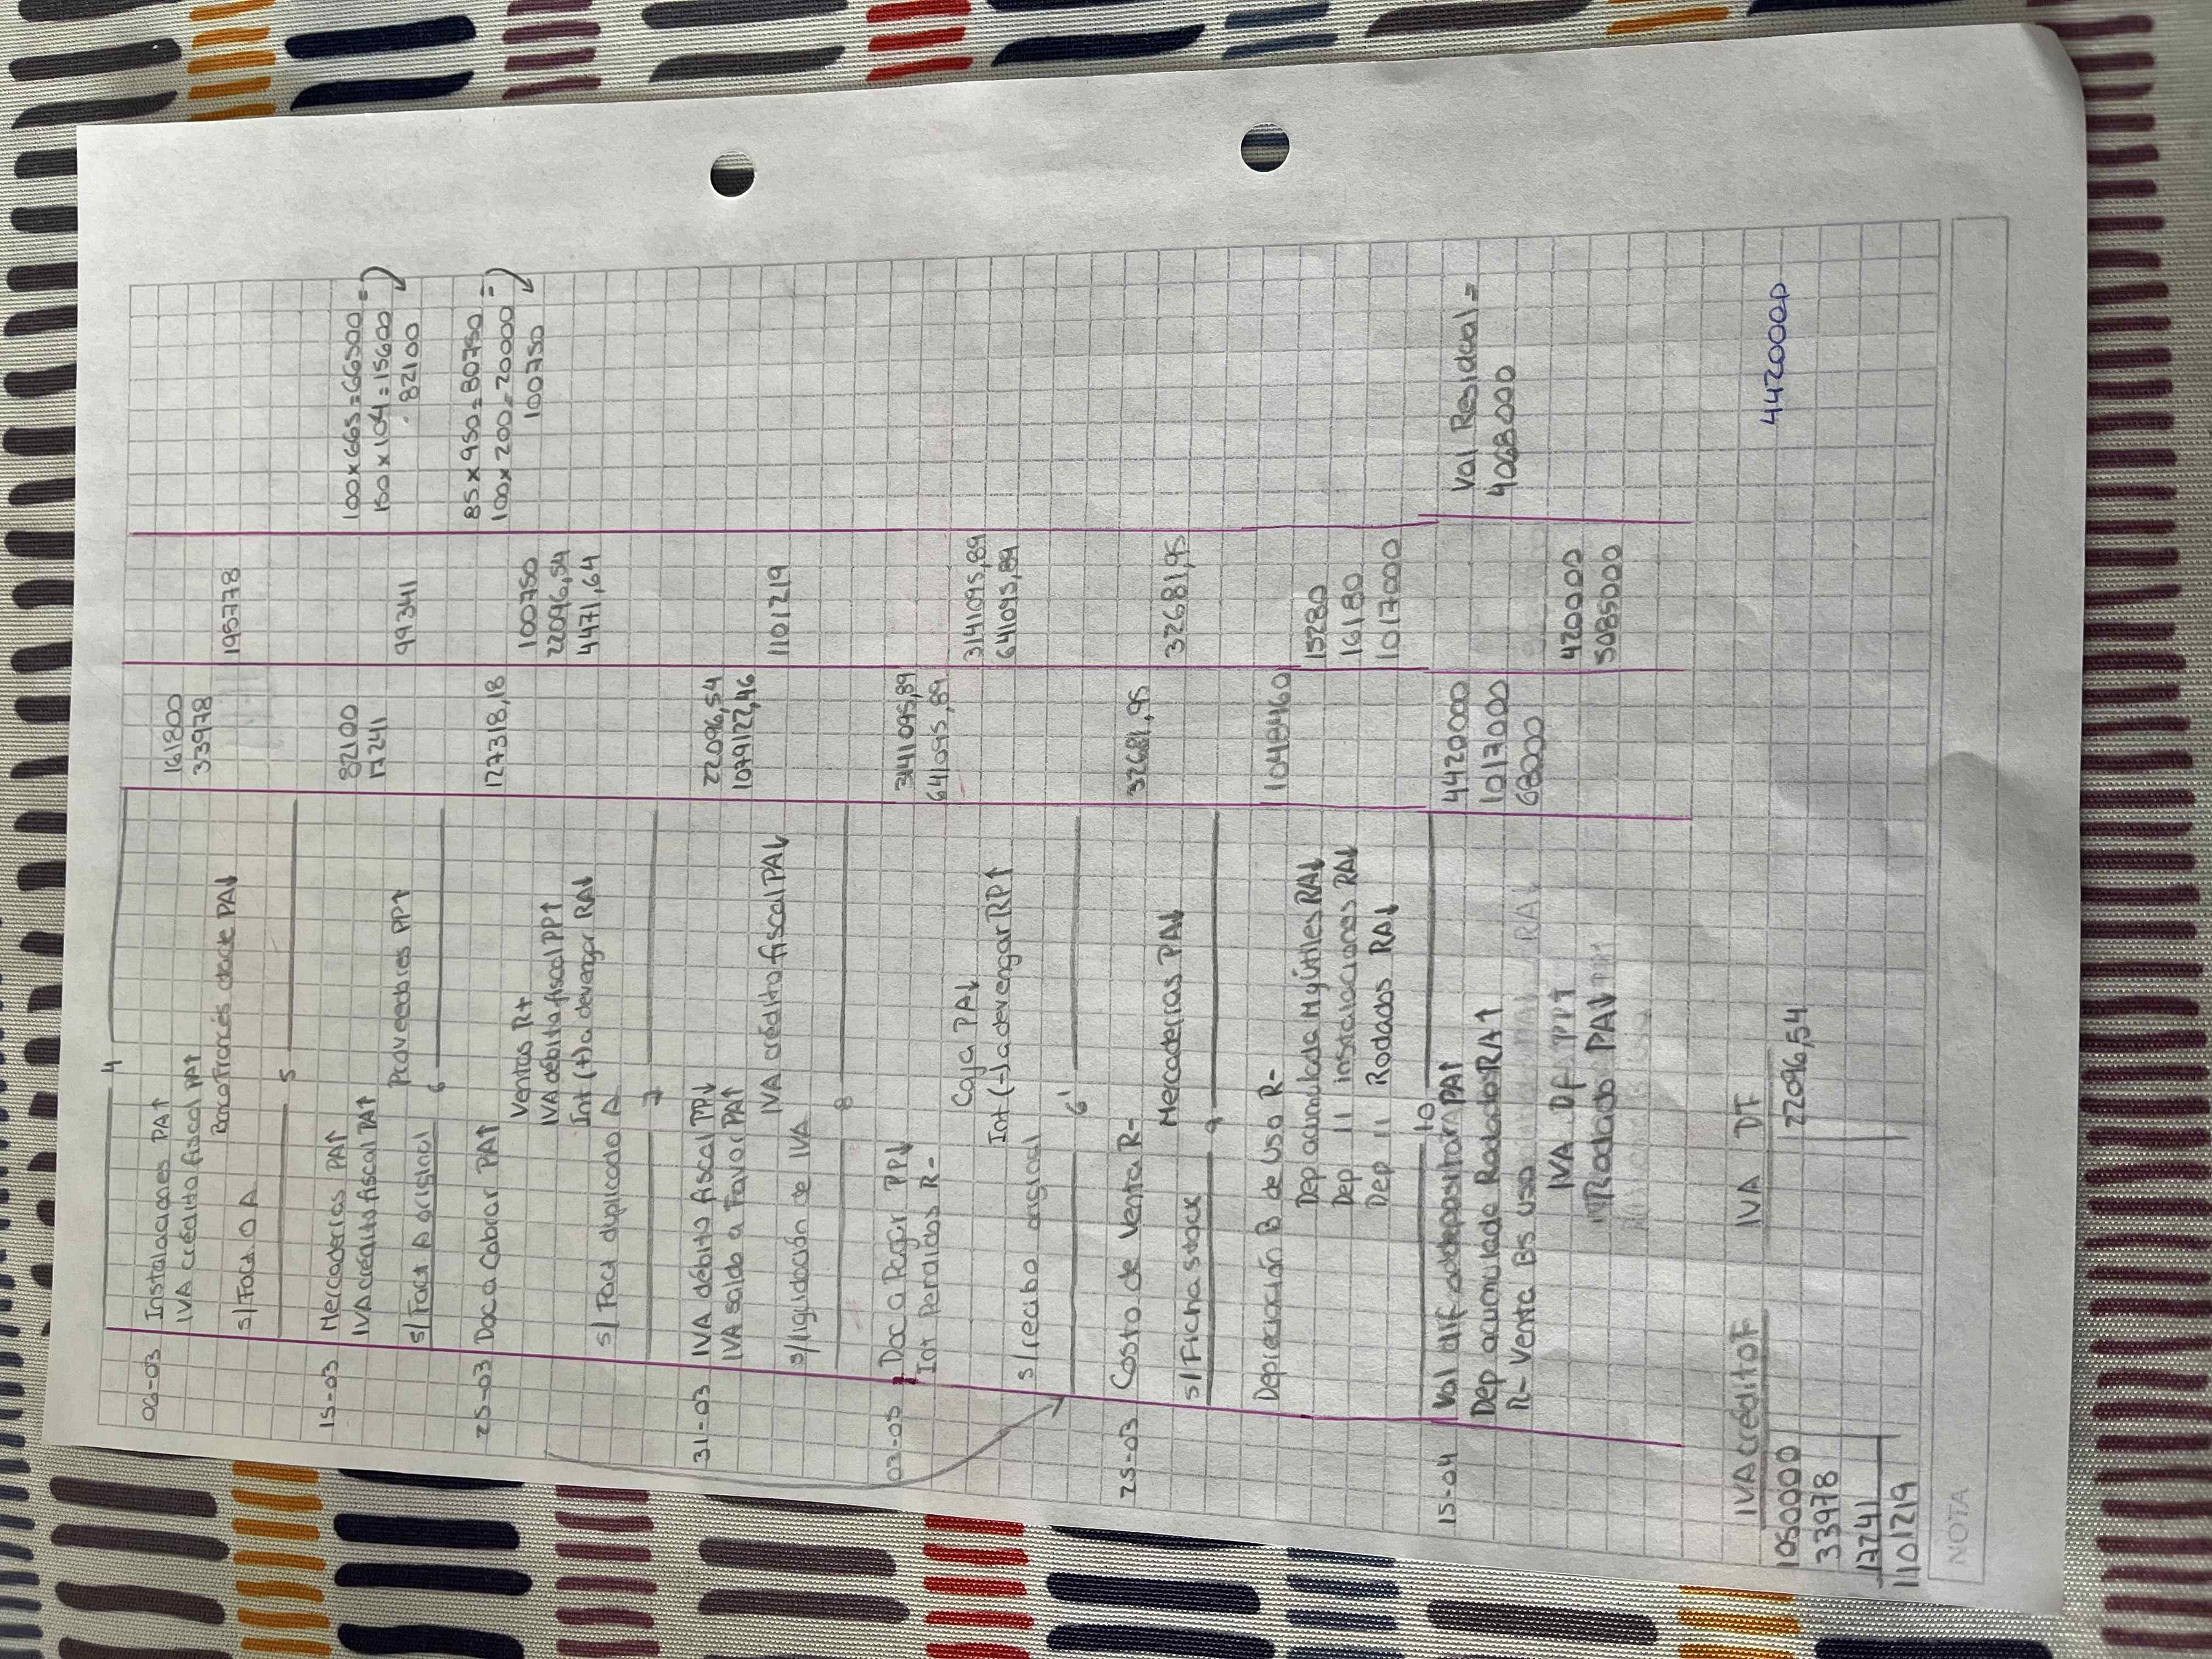 4
06-03 Instalaciones PA↑ 161800
IVA crédito fiscal PA↑ 33978
Banco Francés cta cte PA↓ 195778
s/Fact. O A
5
15-03 Mercaderías PA↑ 82100 100x665=66500 =
IVA crédito fiscal PA↑ 17241 150x104=15600
Proveedores PP↑ 99341 82100
s/Fact A original
6
25-03 Doc a Cobrar PA↑ 127318,18 85x950=80750
Ventas R+ 100750 100x200=20000 =
IVA débito fiscal PP↑ 22096,54 100750
Int (+) a devengar RA↓ 4471,64
s/Fact duplicado A
7
31-03 IVA débito fiscal PP↓ 22096,54
IVA saldo a Favor PA↑ 1079122,46
IVA crédito fiscal PA↓ 1101219
s/liquidación de IVA
8
Doc a Pagar PP↓ 3141095,89
Int Perdidos R- 641095,89
Caja PA↓ 3141095,89
Int (-) a devengar RP↑ 641095,89
s/recibo original
6'
25-03 Costo de Venta R- 32681,95
Mercaderías PA↓ 32681,95
s/Ficha stock
9
Depreciación B de Uso R- 1048460
Dep acumulada M y útiles RA↓ 15280
Dep 11 instalaciones RA↓ 16180
Dep 11 Rodados RA↓ 1017000
10
15-04 Val dif a depositar PA↑ 4420000 Val Residual =
Dep acumulada Rodados RA↑ 1017000 4068000
R- Venta BS USO 68000
IVA DF PP↑ 420000
Rodado PA↓ 5085000
IVA crédito F IVA DF
1050000 22096,54 4420000
33978
17241
1101219
NOTA